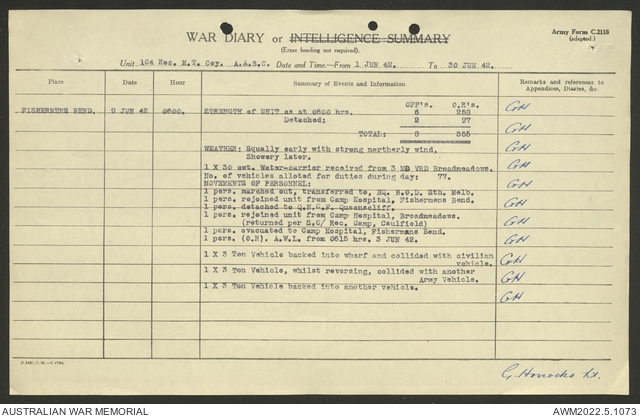 WAR DIARY or INTELLIGENCE SUMMARY
(Erase heading not required).
Army Form C.2118
(adapted.)
Unit 104 Res. M.T. Coy. A.A.S.C. Date and Time.—From 1 JUN 42. To 30 JUN 42.
Place Date Hour Summary of Events and Information Remarks and references to
Appendices, Diaries, &c.
OFF's. O.R's.
FISHERMENS BEND. 9 JUN 42 0600. STRENGTH of UNIT as at 0600 hrs. 6 258 GH
Detached: 2 97
TOTAL: 8 355 GH
WEATHER: Squally early with strong northerly wind. GH
Showery later.
1 X 30 cwt. Water-carrier received from 3 MD VRD Broadmeadows. GH
No. of vehicles alloted for duties during day: 77. GH
MOVEMENTS OF PERSONNEL:
1 pers. marched out, transferred to, HQ. B.O.D. Sth. Melb. GH
1 pers. rejoined unit from Camp Hospital, Fishermens Bend.
1 pers. detached to Q.M.G.F. Queenscliff. GH
1 pers. rejoined unit from Camp Hospital, Broadmeadows.
(returned per S.C/ Rec. Camp, Caulfield) GH
1 pers. evacuated to Camp Hospital, Fishermens Bend.
1 pers. (O.R). A.W.L. from 0615 hrs. 3 JUN 42. GH
1 X 3 Ton Vehicle backed into wharf and collided with civilian
vehicle. GH
1 X 3 Ton Vehicle, whilst reversing, collided with another
Army Vehicle. GH
1 X 3 Ton Vehicle backed into another vehicle. GH
Lt.
AUSTRALIAN WAR MEMORIAL AWM2022.5.1073